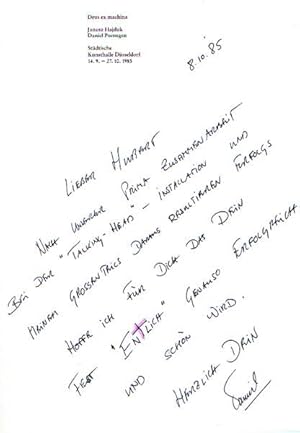 Deus ex machina
Janosz Hajduk
Daniel Poensgen
Städtische
Kunsthalle Düsseldorf
14. 9. – 27. 10. 1985
8.10.'85
LIEBER HUBART
NACH UNSERER PRIMA ZUSAMMENARBEIT
BEI DER "TALKING-HEAD"-INSTALLATION UND
MEINEM GROSSEN TRICS DARAUS RESULTIEREN ERFOLGS
HOFFE ICH FÜR DICH DAS DEIN
FEST "ENTLICH" GENAUSO ERFOLGREICH
UND SCHÖN WIRD.
HERZLICH DEIN
Daniel